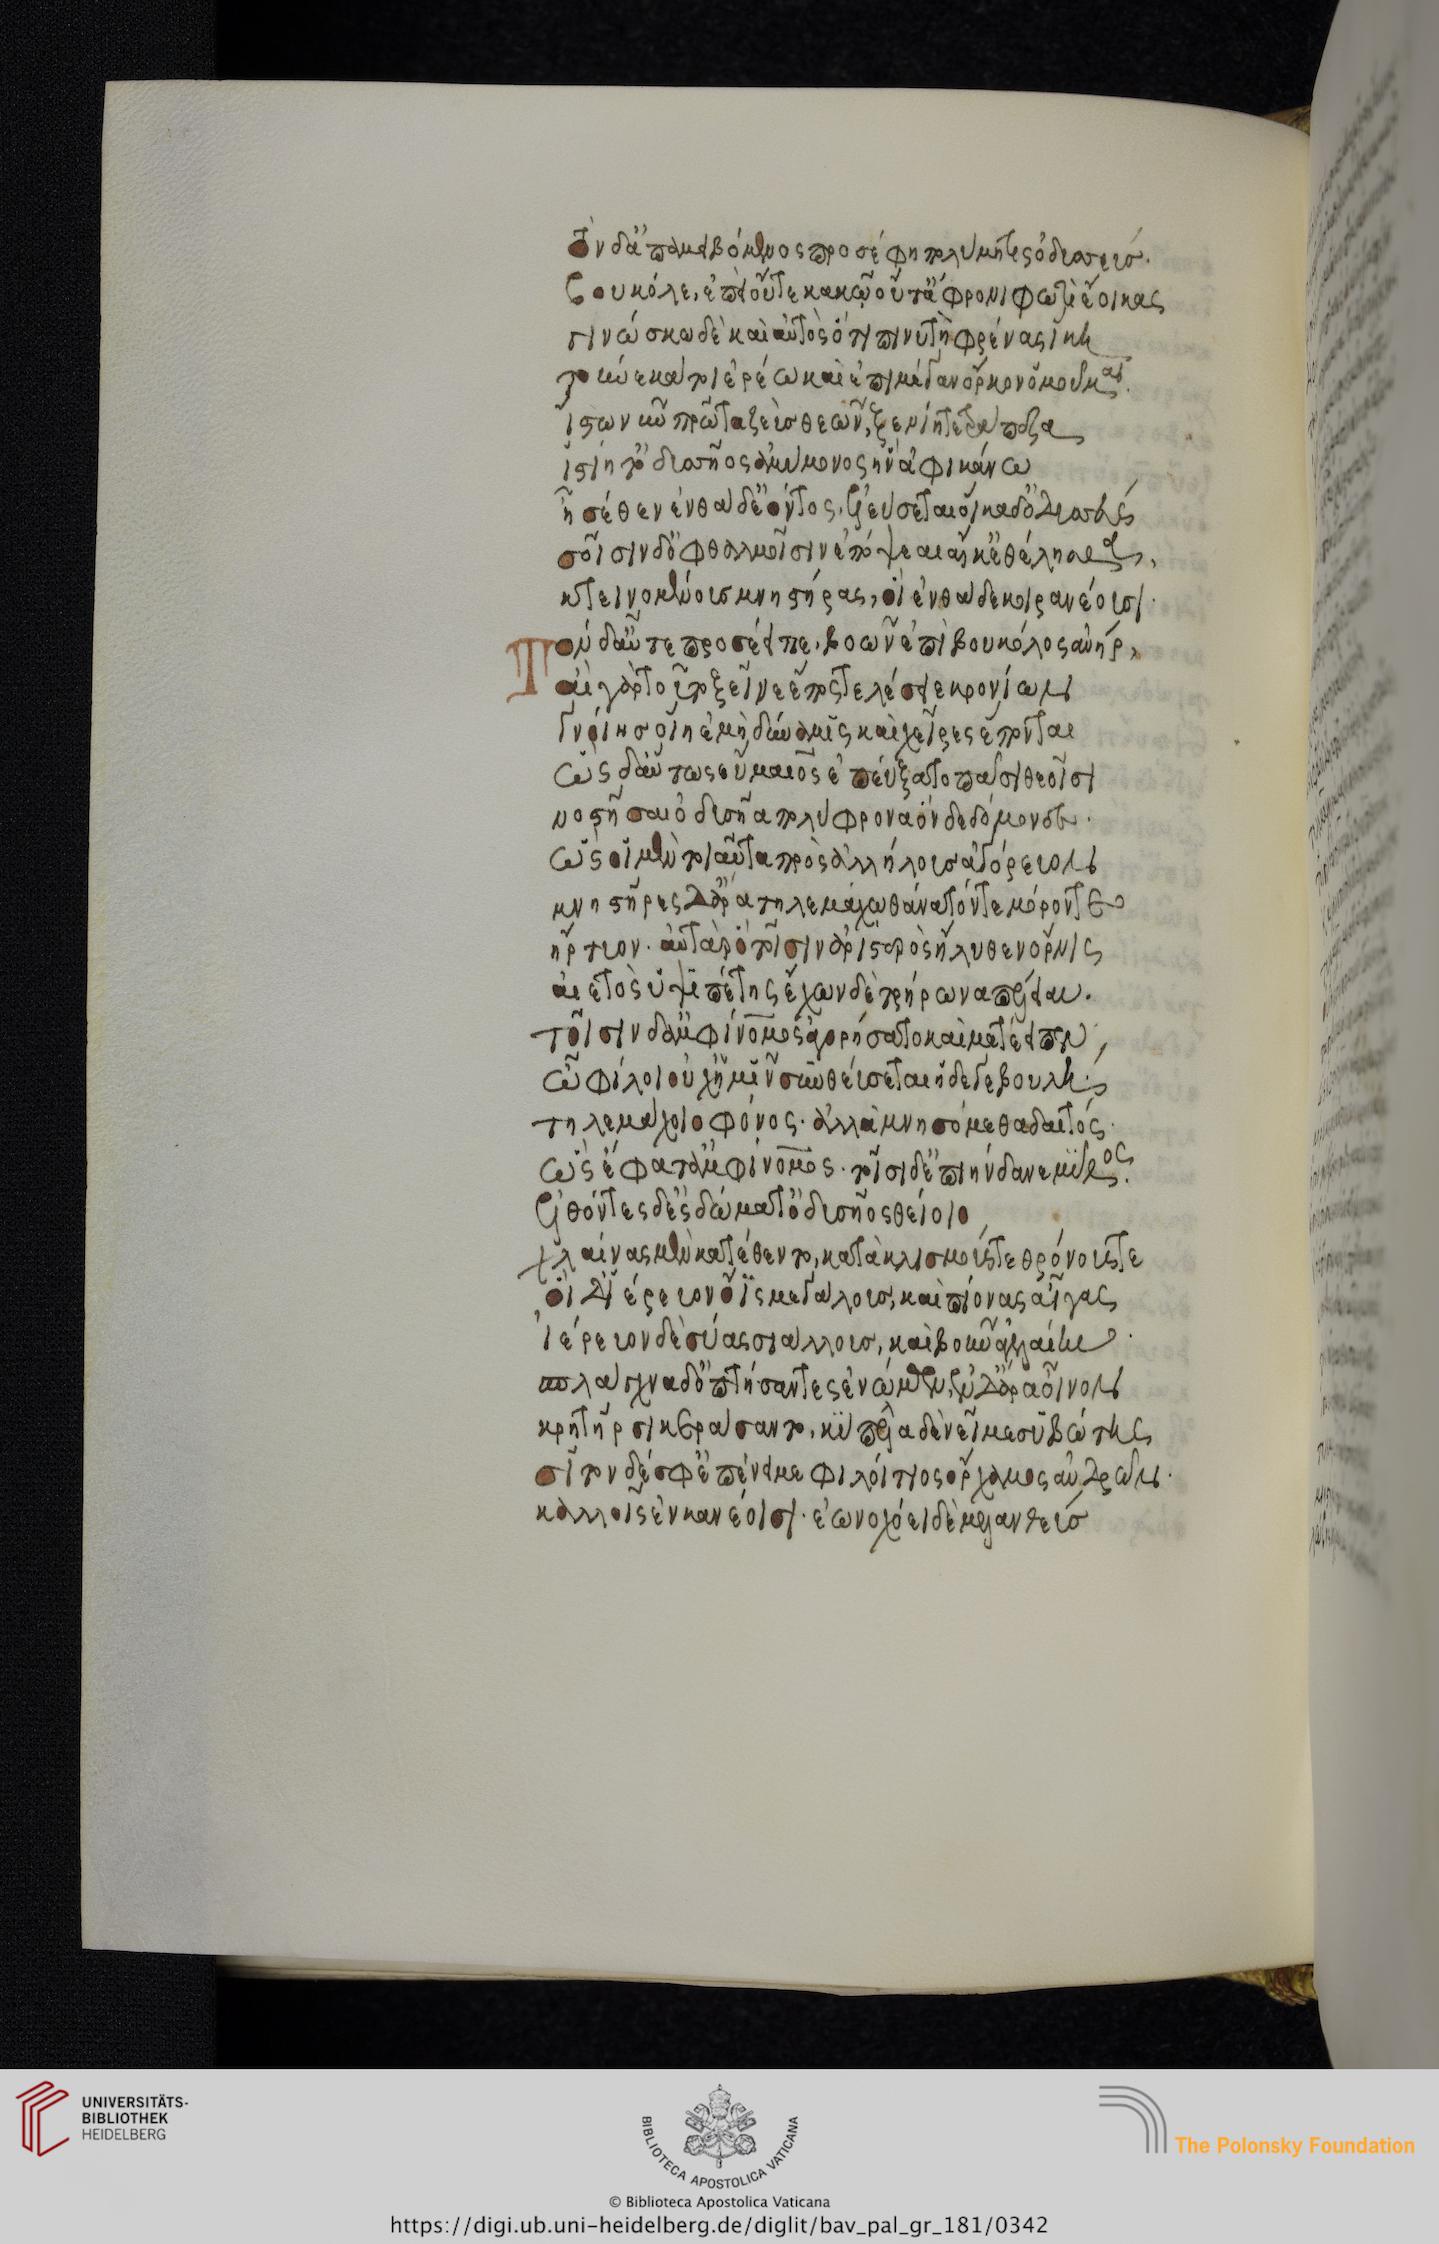 ὸν δ' ἀπαμειβόμενος προσέφη πολύμητις ὀδυσσεύς.
βουκόλε, ἐπεὶ οὔτε κακῶ οὔτ' ἄφρονι φωτὶ ἔοικας
γινώσκω δὲ καὶ αὐτὸς ὅ τοι πινυτὴ φρένας ἵκει
τοὔνεκά τοι ἐρέω καὶ ἐπὶ μέγαν ὅρκον ὀμοῦμαι.
ἴστω νῦν πρῶτα ζεὺς θεῶν, ξενίη τε τράπεζα
ἱστίη τ' ὀδυσῆος ἀμύμονος ἣν ἀφικάνω
ἦ σέθεν ἐνθάδ' ἐόντος, ἐλεύσεται οἴκαδ' ὀδυσσεύς
σοῖσιν δ' ὀφθαλμοῖσιν ἐπόψεαι αἴ κ' ἐθέλησθα,
κτεινομένους μνηστῆρας, οἳ ἐνθάδε κοιρανέουσι.
Τὸν δ' αὖτε προσέειπε, βοῶν ἐπὶ βουκόλος ἀνήρ,
αἲ γὰρ τοῦτο ξεῖνε ἔπος τελέσειε κρονίων
γνοίης χ' οἵη ἐμὴ δύναμις καὶ χεῖρες ἕπονται
ὣς δ' αὔτως εὔμαιος ἐπεύξατο πᾶσι θεοῖσι
νοστῆσαι ὀδυσῆα πολύφρονα ὅνδε δόμονδε.
ὣς οἱ μὲν τοιαῦτα πρὸς ἀλλήλους ἀγόρευον
μνηστῆρες δ' ἄρα τηλεμάχω θάνατόν τε μόρον τε
ἤρτυον. αὐτὰρ ὁ τοῖσιν ἀριστερὸς ἤλυθεν ὄρνις
αἰετὸς ὑψιπέτης ἔχων δὲ τρήρωνα πέλειαν.
τοῖσιν δ' ἀμφίνομος ἀγορήσατο καὶ μετέειπεν,
ὦ φίλοι οὐχ ἡμῖν συνθεύσεται ἥδε γε βουλή.
τηλεμάχοιο φόνος. ἀλλὰ μνησόμεθα δαιτός.
ὣς ἔφατ' ἀμφίνομος. τοῖσι δ' ἐπιήνδανε μῦθος.
ἐλθόντες δ' ἐς δώματ' ὀδυσῆος θείοιο
χλαίνας μὲν κατέθεντο, κατὰ κλισμούς τε θρόνους τε
οἱ δ' ἱέρευον ὄϊς μεγάλους, καὶ πίονας αἶγας
ἱέρευον δὲ σύας σιάλλους, καὶ βοῦν ἀγελαίην.
σπλάγχνα δ' ὀπτήσαντες ἐνώμων, ἐν δ' ἄρα οἶνον
κρητῆρσι κερράσαντο, κύπελλα δὲ νεῖμε συβώτης
σῖτον δέ σφ' ἐπένειμε φιλοίτιος ὄρχαμος ἀνδρῶν.
καλλοῖς ἐν κανέοισι. ἐωνοχόει δὲ μελανθεύς
UNIVERSITÄTS-
BIBLIOTHEK
HEIDELBERG
BIBLIOTECA APOSTOLICA VATICANA
The Polonsky Foundation
© Biblioteca Apostolica Vaticana
https://digi.ub.uni-heidelberg.de/diglit/bav_pal_gr_181/0342